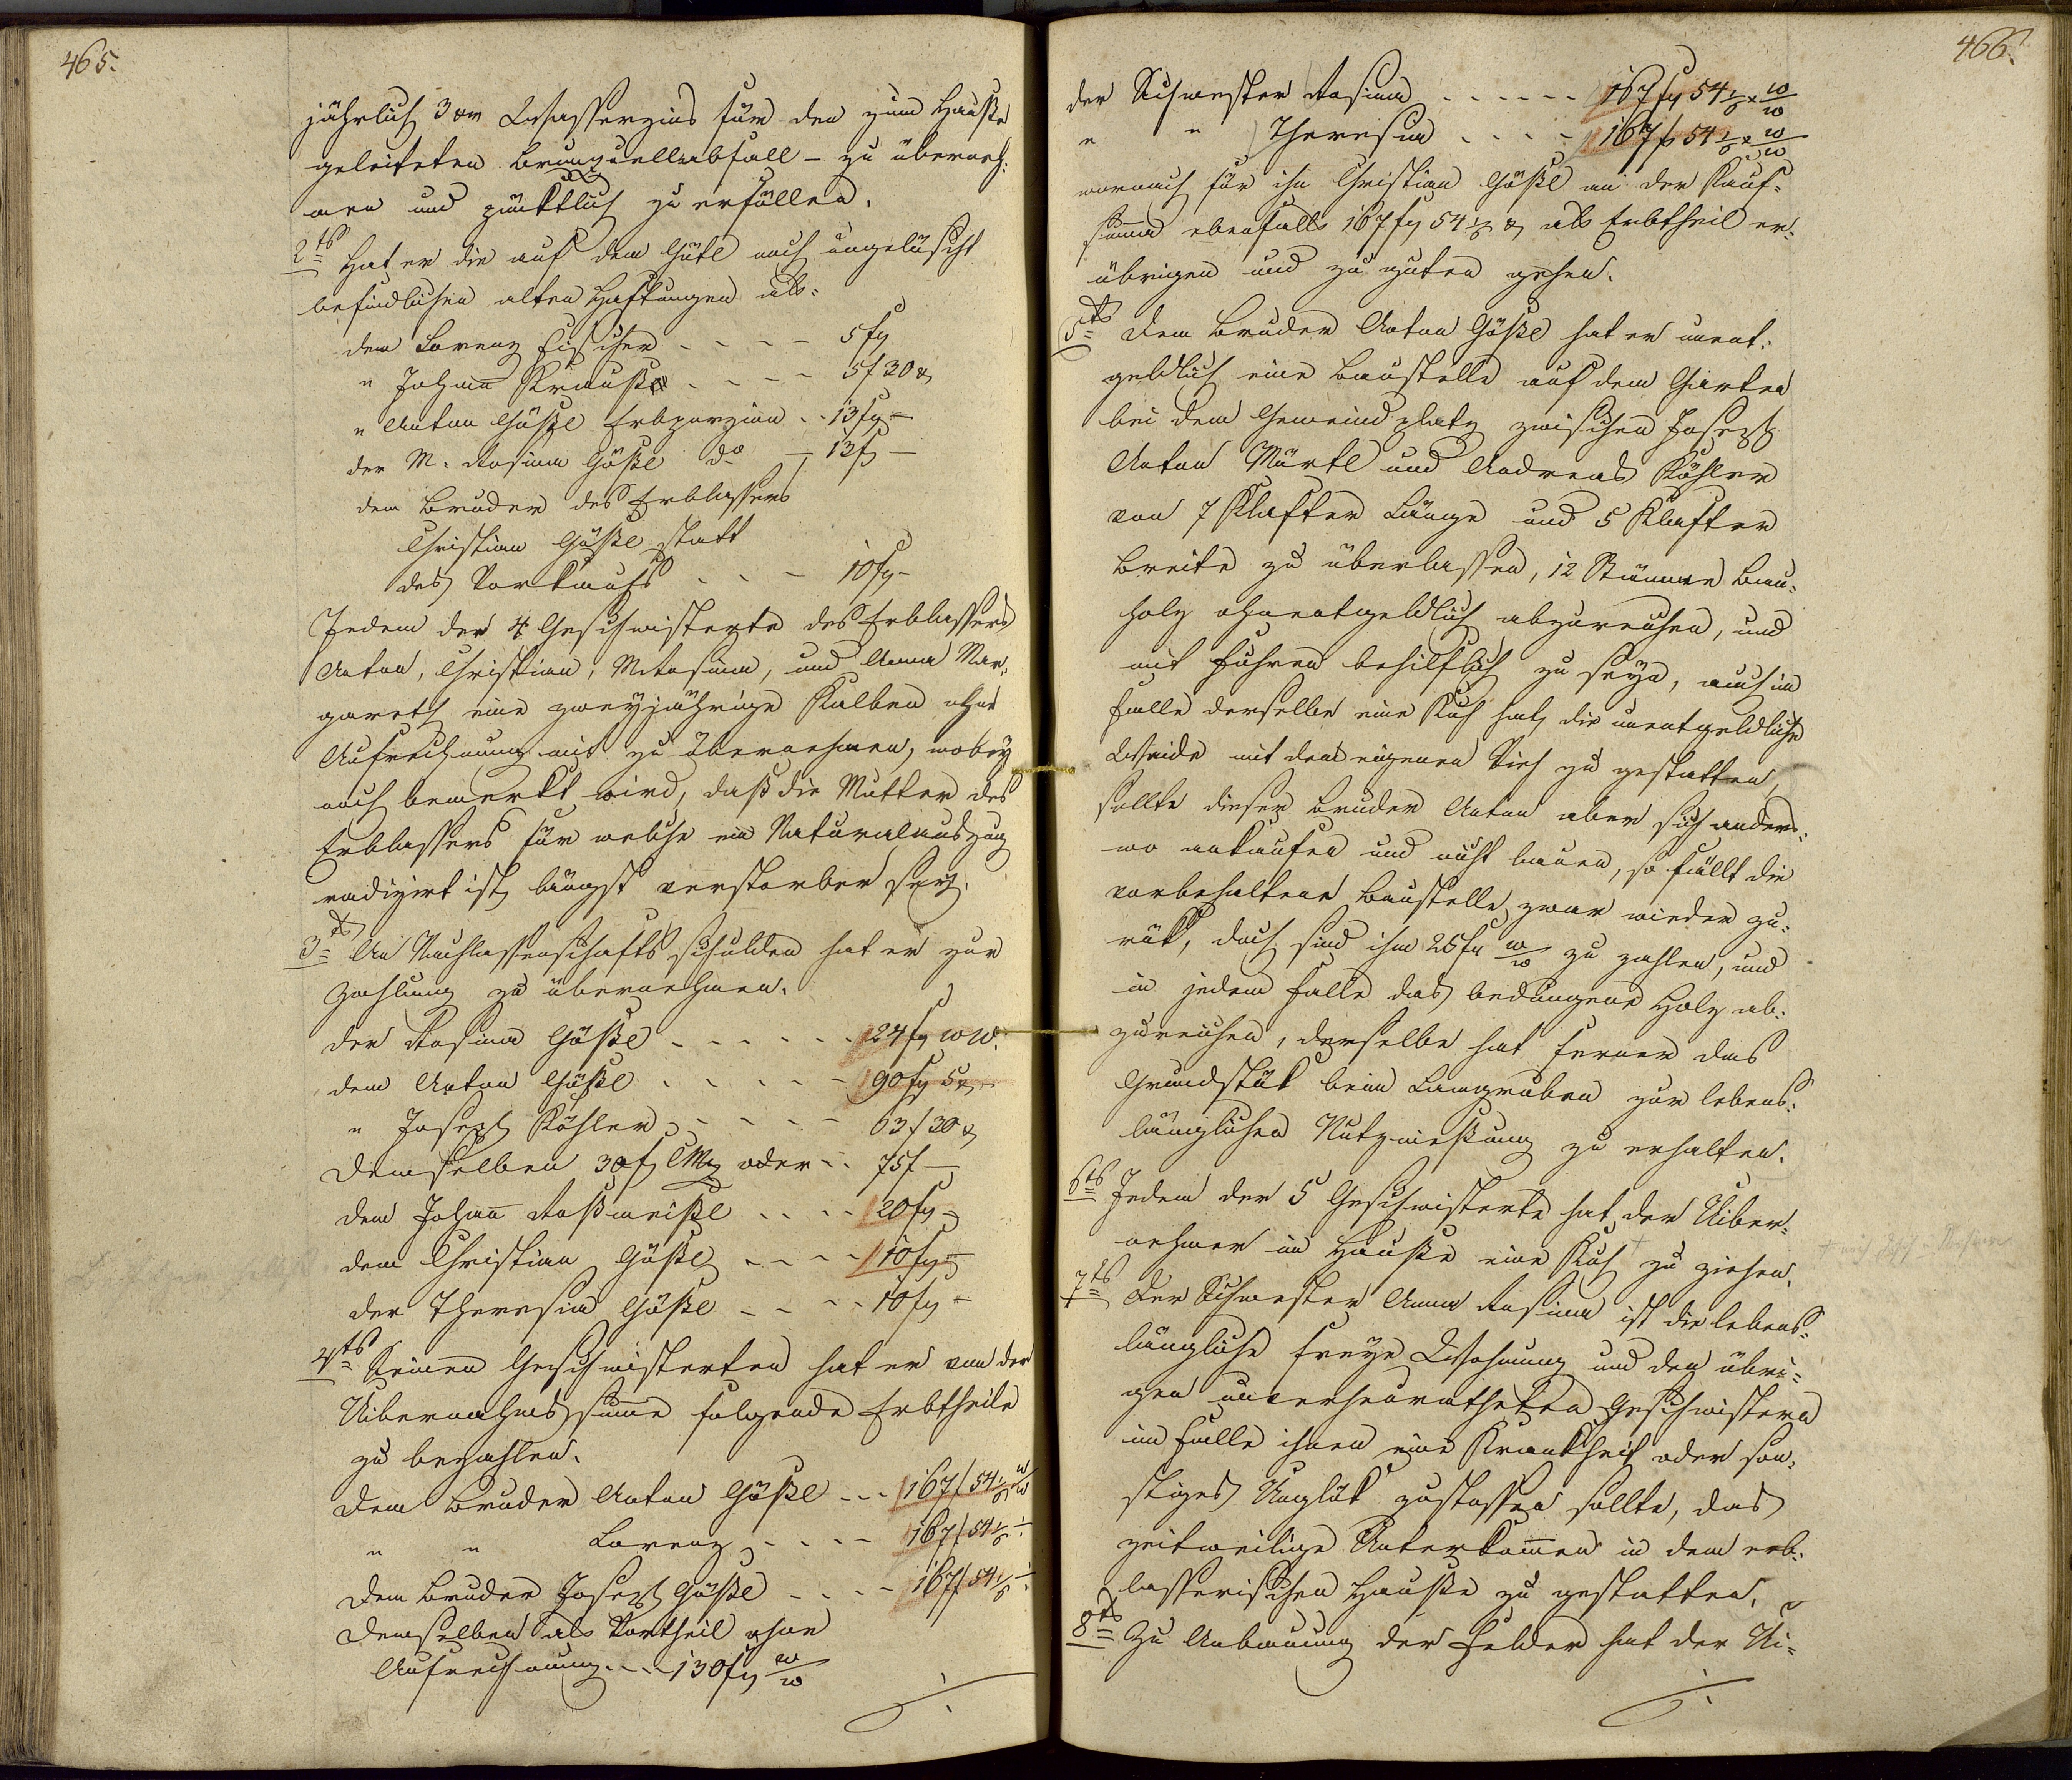 465.
jährlich 3 xr Wasserzins für den zum Hauße
geleiteten Brunquellabfall – zu überneh:
men und pünktlich zu erfüllen.
2ts Hat er die auf dem Gütl noch ungelöscht
befindlichen alten Haftungen als:
dem Lorenz Fischer - - - - 5 fl
" Johann Krauße - - - - 5 f 30 x
" Anton Gößl Erbporzion - - 13 fl –
der M: Rosina Gößl do – 13 f –
dem Bruder des Erblassers
Christian Gößl statt
des Vorkaufs - - - 10 fl –
Jedem der 4 Geschwisterte des Erblassers
Anton, Christian, M Rosina, und Anna Mar-
gareth eine zweyjährige Kalben ohne
Aufrechnung mit zu übernehmen, wobey
noch bemerkt wird, daß die Mutter des
Erblassers für welche ein Naturalauszug
radizirt ist, längst verstorben sey.
3ts An Nachlassenschafts schulden hat er zur
Zahlung zu übernehmen.
der Rosina Gößl - - - - - - 124 fl W W.
dem Anton Gößl - - - - - 190 fl 5 x
" Joseph Köhler - - - - - 63 f 30 x
Demselben 30 f CMz oder - - 75 f –
dem Johann Roßmeißl - - - - 120 fl –
dem Christian Gößl - - - - 110 fl –
der Theresia Gößl - - - - 10 fl –
4ts Seinen Geschwisterten hat er von der
Uibernahms summe folgende Erbtheile
zu bezahlen.
Dem Bruder Anton Gößl - - - 167 f 54 1/6 W/W
" " Lorenz - - - - 167 f 54 1/6
Dem Bruder Joseph Gößl - - - - 167 f 54 1/6
Demselben als Vortheil ohne
Aufrechnung - - - 130 fl W/W
466.
der Schwester Rosina - - - - - - 167 fl 54 1/6 x W/W
" " Theresia - - - - 167 f 54 1/6 x W/W
wornach für ihn Christian Gößl an der Kauf-
summa ebenfalls 167 fl 54 1/6 x als Erbtheil er-
übrigen und zu guten gehen.
5ts Dem Bruder Anton Gößl hat er unent-
geldlich eine Baustelle auf dem Garten
bei dem Gemeind platz zwischen Joseph
Anton Märtl und Andreas Köhler
von 7 Klafter Länge und 5 Klafter
Breite zu überlassen, 12 Stämme Bau-
holz ohnentgeldlich abzureichen, und
mit Fuhren behilflich zu seyn, auch im
Falle derselbe eine Kuh hat, die unentgeldliche
Weide mit dem eigenen Vieh zu gestatten,
sollte dieser Bruder Anton aber sich anders-
wo ankaufen und nicht bauen, so fällt die
vorbehaltene Baustelle zwar wieder zu-
rük, doch sind ihm 25 fl W/W zu zahlen, und
in jedem Falle das bedungene Holz ab-
zureichen, derselbe hat ferner das
Grundstük beim Langruben zur lebens-
länglichen Nutznießung zu erhalten.
6ts Jedem der 5 Geschwisterte hat der Uiber-
nehmer im Hauße eine Kuh zu ziehen.
7ts Der Schwester Anna Rosina ist die lebens-
längliche freye Wohnung und den übri-
gen unverheuratheten Geschwistern
im Falle ihnen eine Krankheit oder son-
stiges Unglük zustossen sollte, das
zeitweilige Unterkommen in dem erb-
lasserischen Hauße zu gestatten.
8ts Zu Anbauung der Felder hat der Ui-